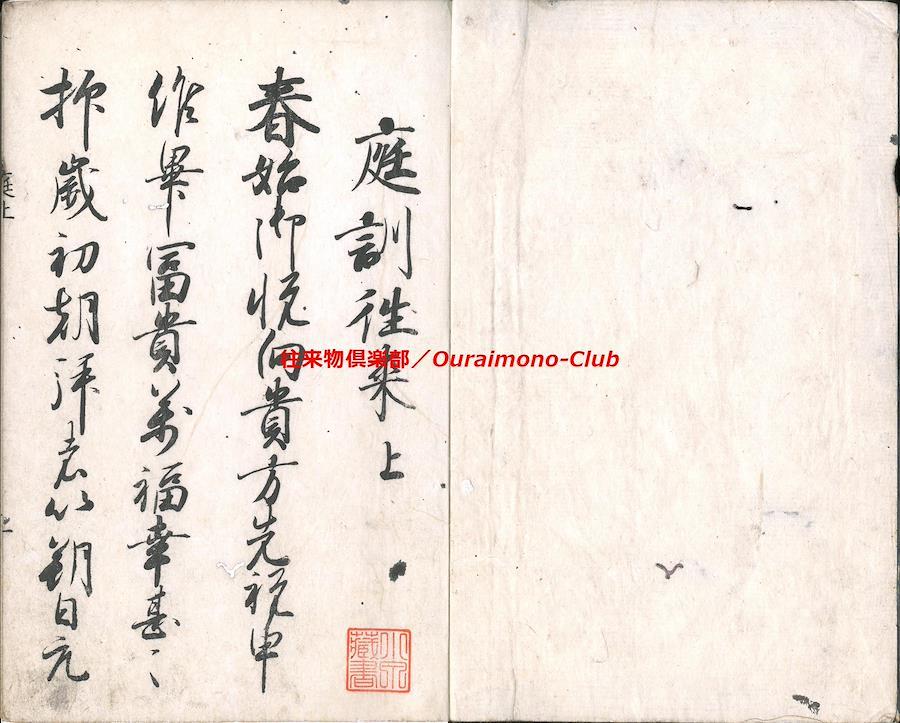 庭訓往来 上
春始御悦向貴方先祝申
候畢冨貴萬福幸甚〻
抑歳初朝拝者以朔日元
庭上
小泉藏書
往来物倶楽部／Ouraimono-Club